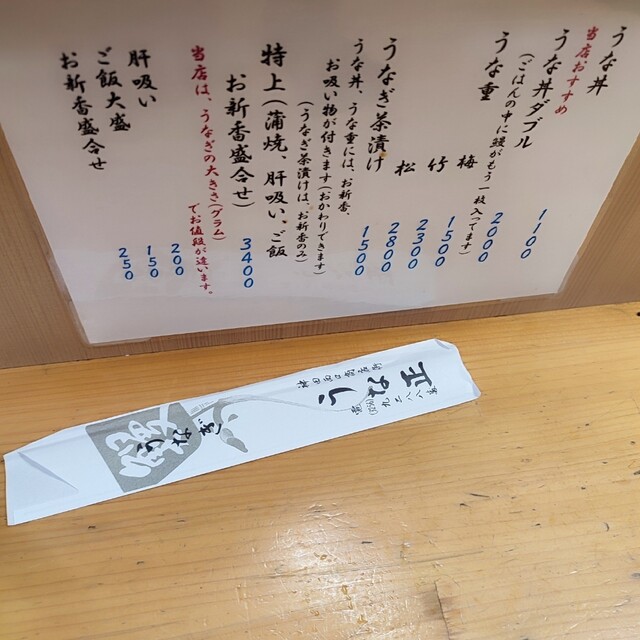 うな丼
当店おすすめ
1100
うな丼ダブル
(ごはんの中に鰻がもう一枚入ってます)
2000
うな重
梅 1500
竹 2300
松 2800
うなぎ茶漬け 1500
うな丼、うな重には、お新香、
お吸い物が付きます(おかわりできます)
(うなぎ茶漬けは、お新香のみ)
特上(蒲焼、肝吸い、ご飯
お新香盛合せ) 3400
当店は、うなぎの大きさ(グラム)
でお値段が違います。
肝吸い 200
ご飯大盛 150
お新香盛合せ 250
うな正
神田西口商店街
うなぎ